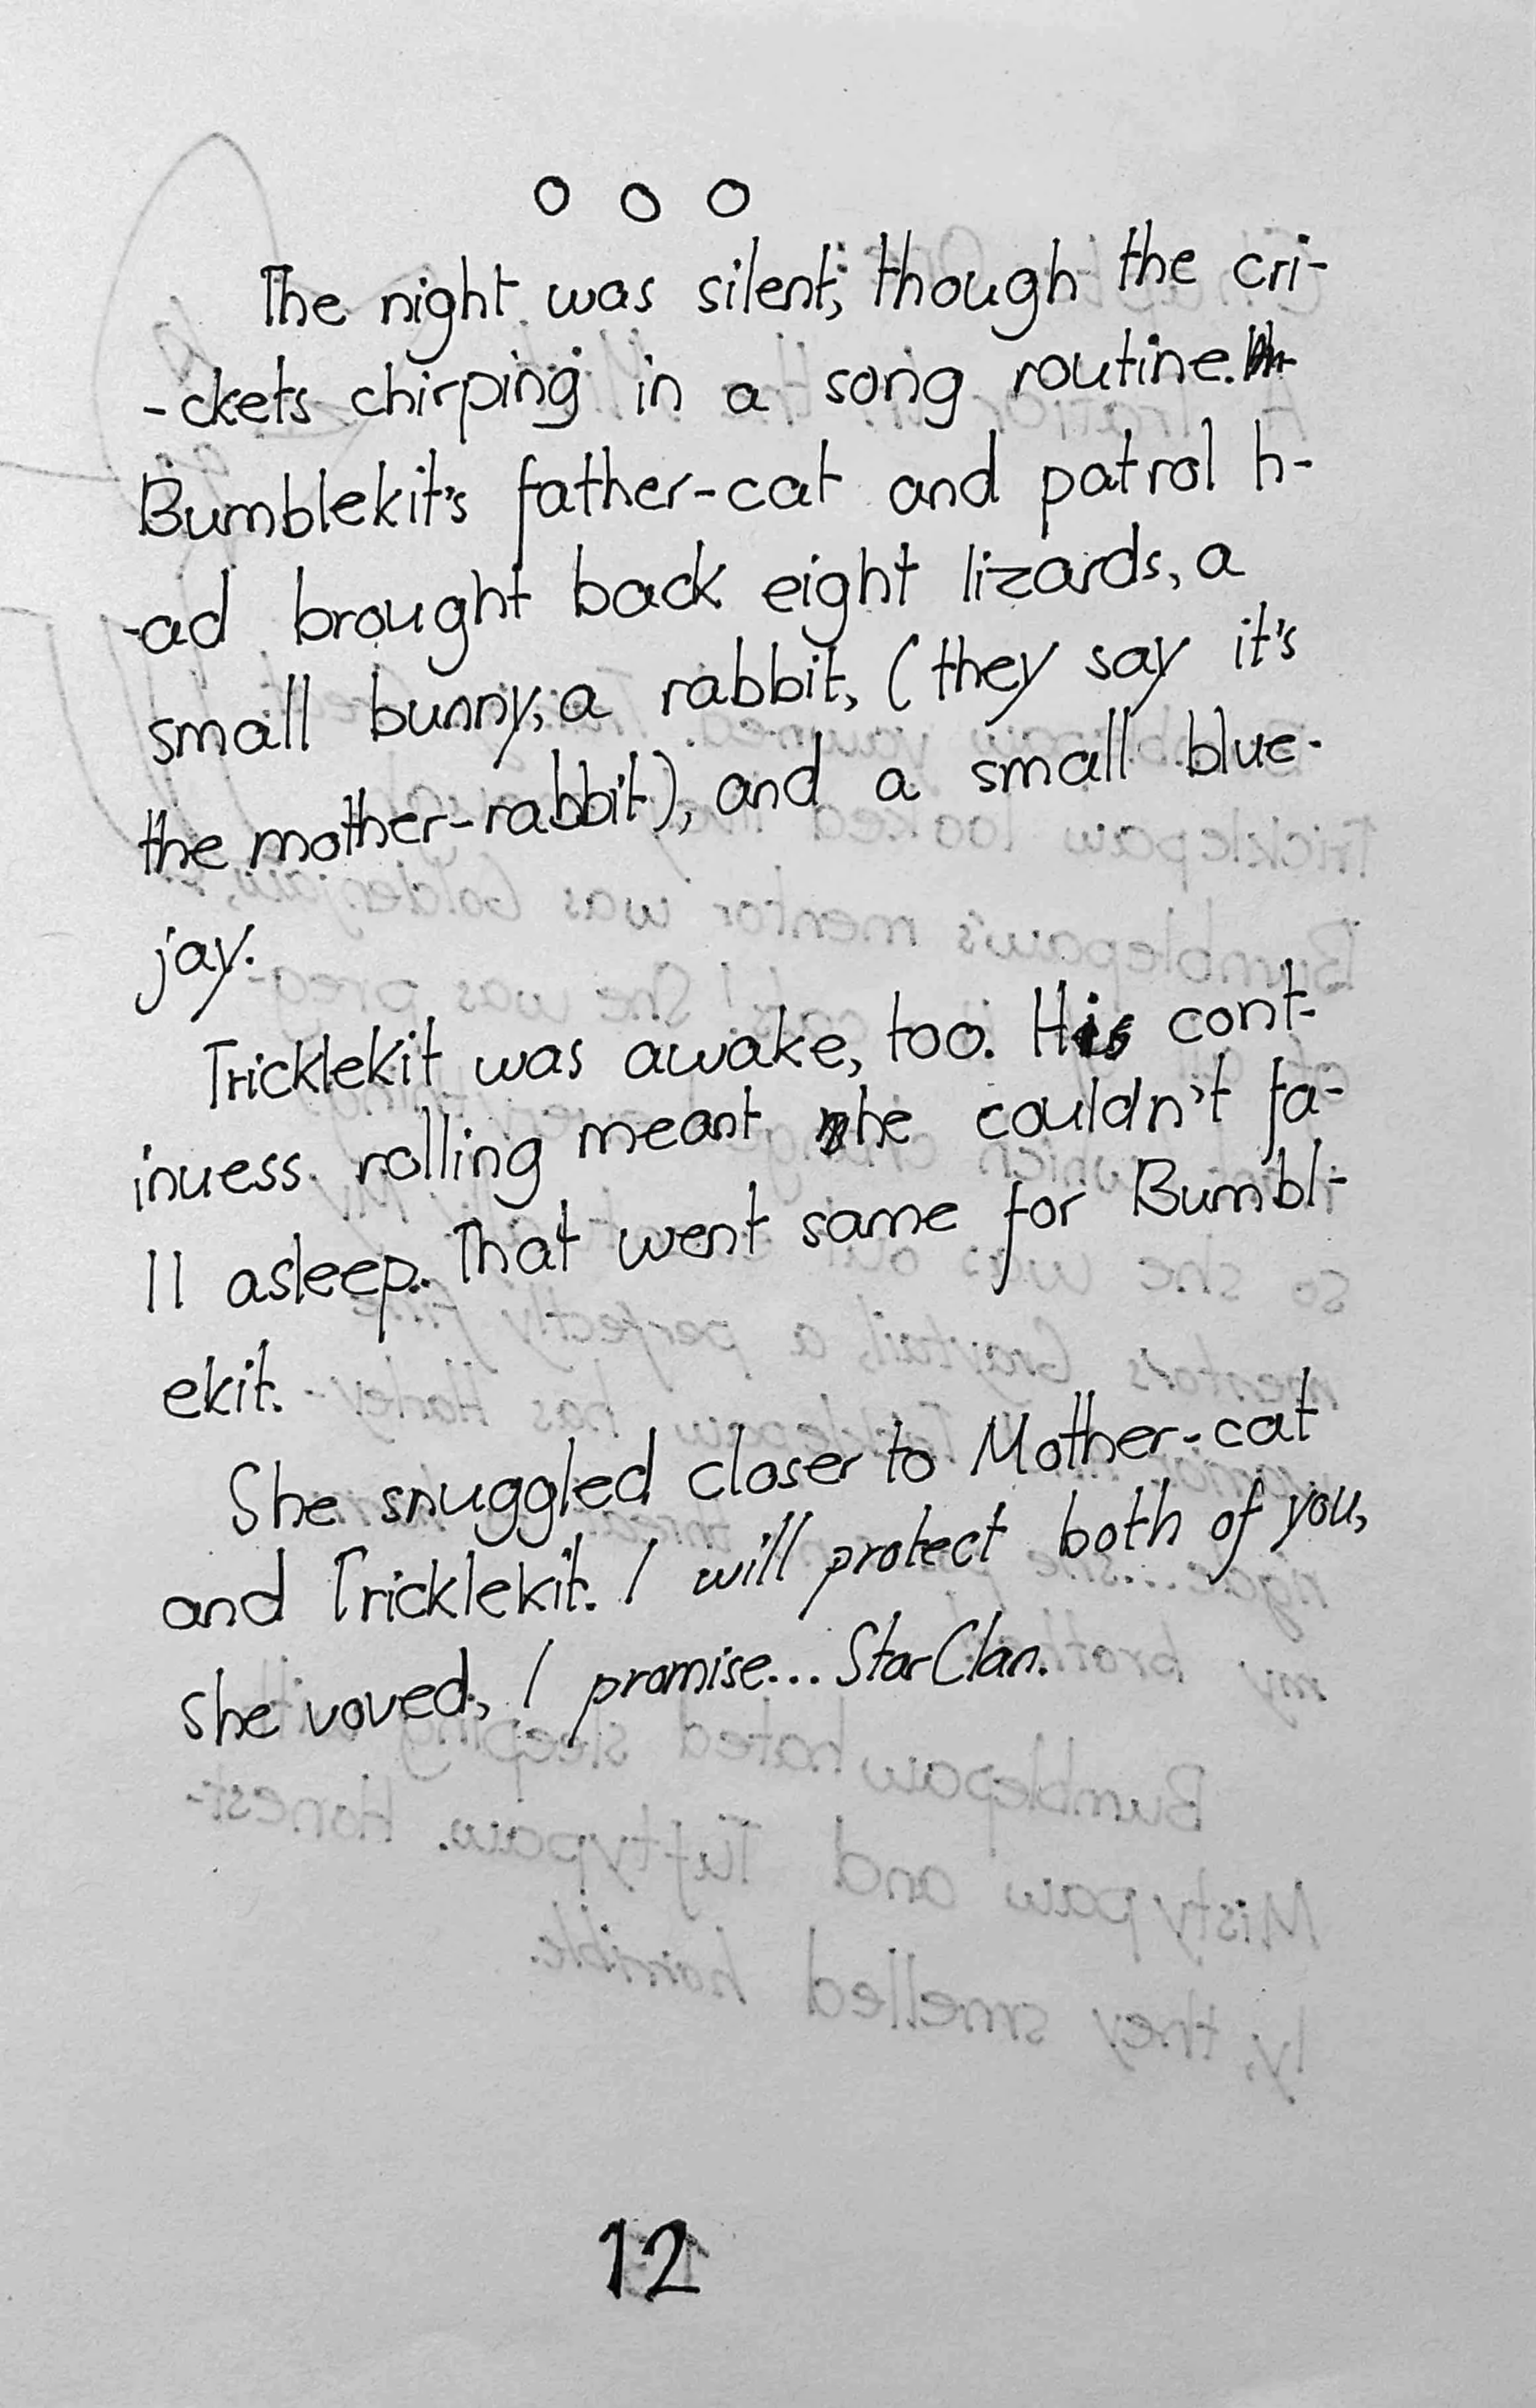 o o o
The night was silent, though the cri-
-ckets chirping in a song routine.
Bumblekit's father-cat and patrol h-
-ad brought back eight lizards, a
small bunny, a rabbit, (they say it's
the mother-rabbit), and a small blue-
jay.
Tricklekit was awake, too. His cont-
inuess rolling meant he couldn't fa-
ll asleep. That went same for Bumbl-
ekit.
She snuggled closer to Mother-cat
and Tricklekit. I will protect both of you,
she voved, I promise... StarClan.
12